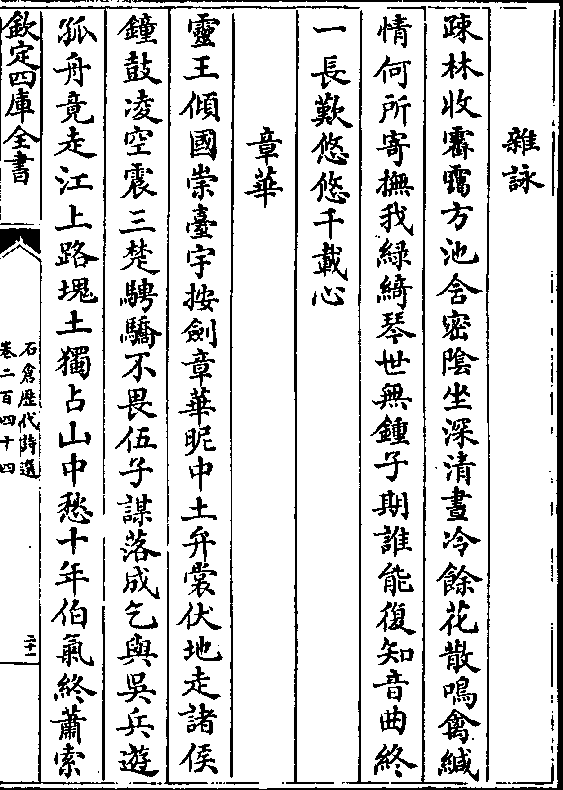 雜詠
疎林收霽靄方池含密陰坐深清晝冷餘花散鳴禽緘
情何所寄撫我緑綺琴世無鍾子期誰能復知音曲終
一長歎悠悠千載心
章華
靈王傾國崇臺宇按劍章華昵中土弁裳伏地走諸侯
鐘鼓凌空震三楚騁驕不畏伍子謀落成乞與吳兵遊
孤舟竟走江上路塊土獨占山中愁十年伯氣終蕭索
欽定四庫全書
石倉歷代詩選
卷二百四十四
二十一